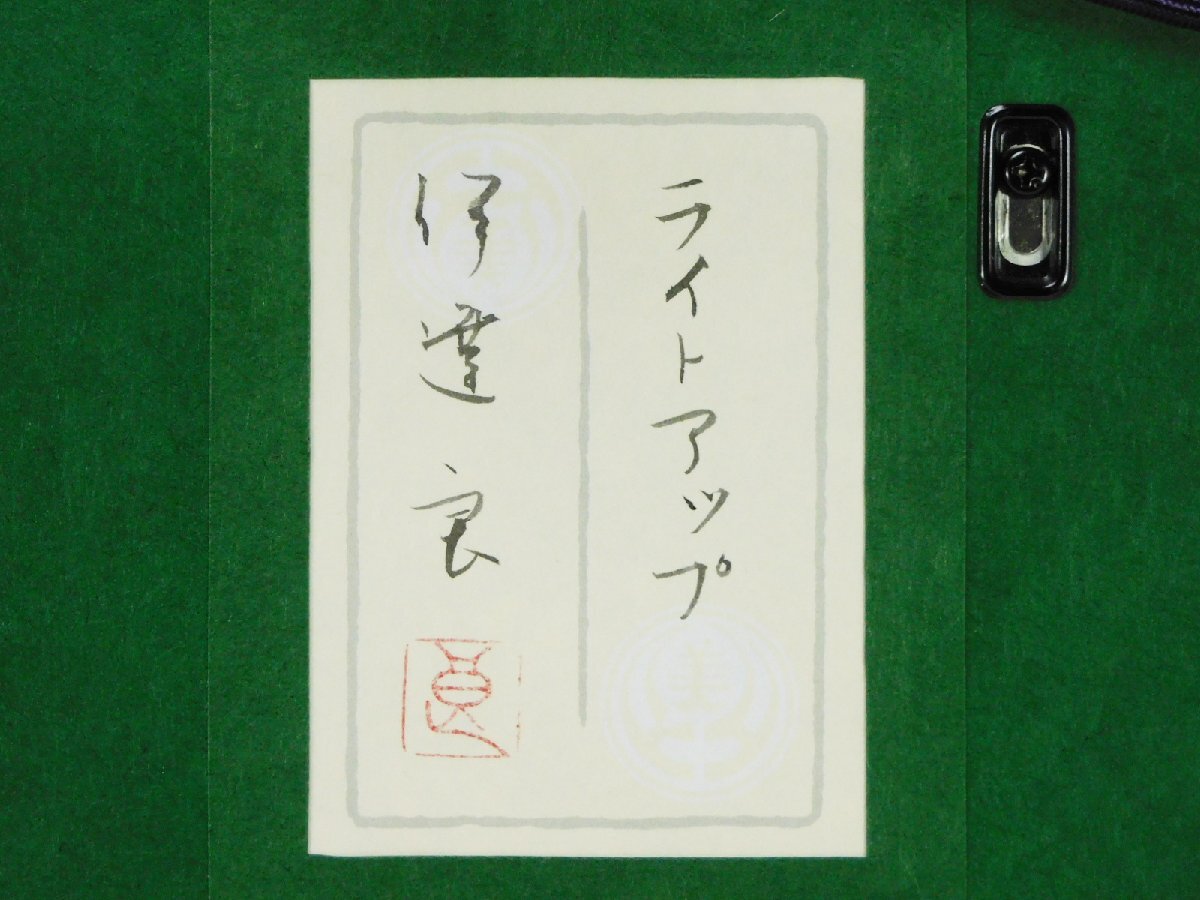 ライトアップ
伊達良
良